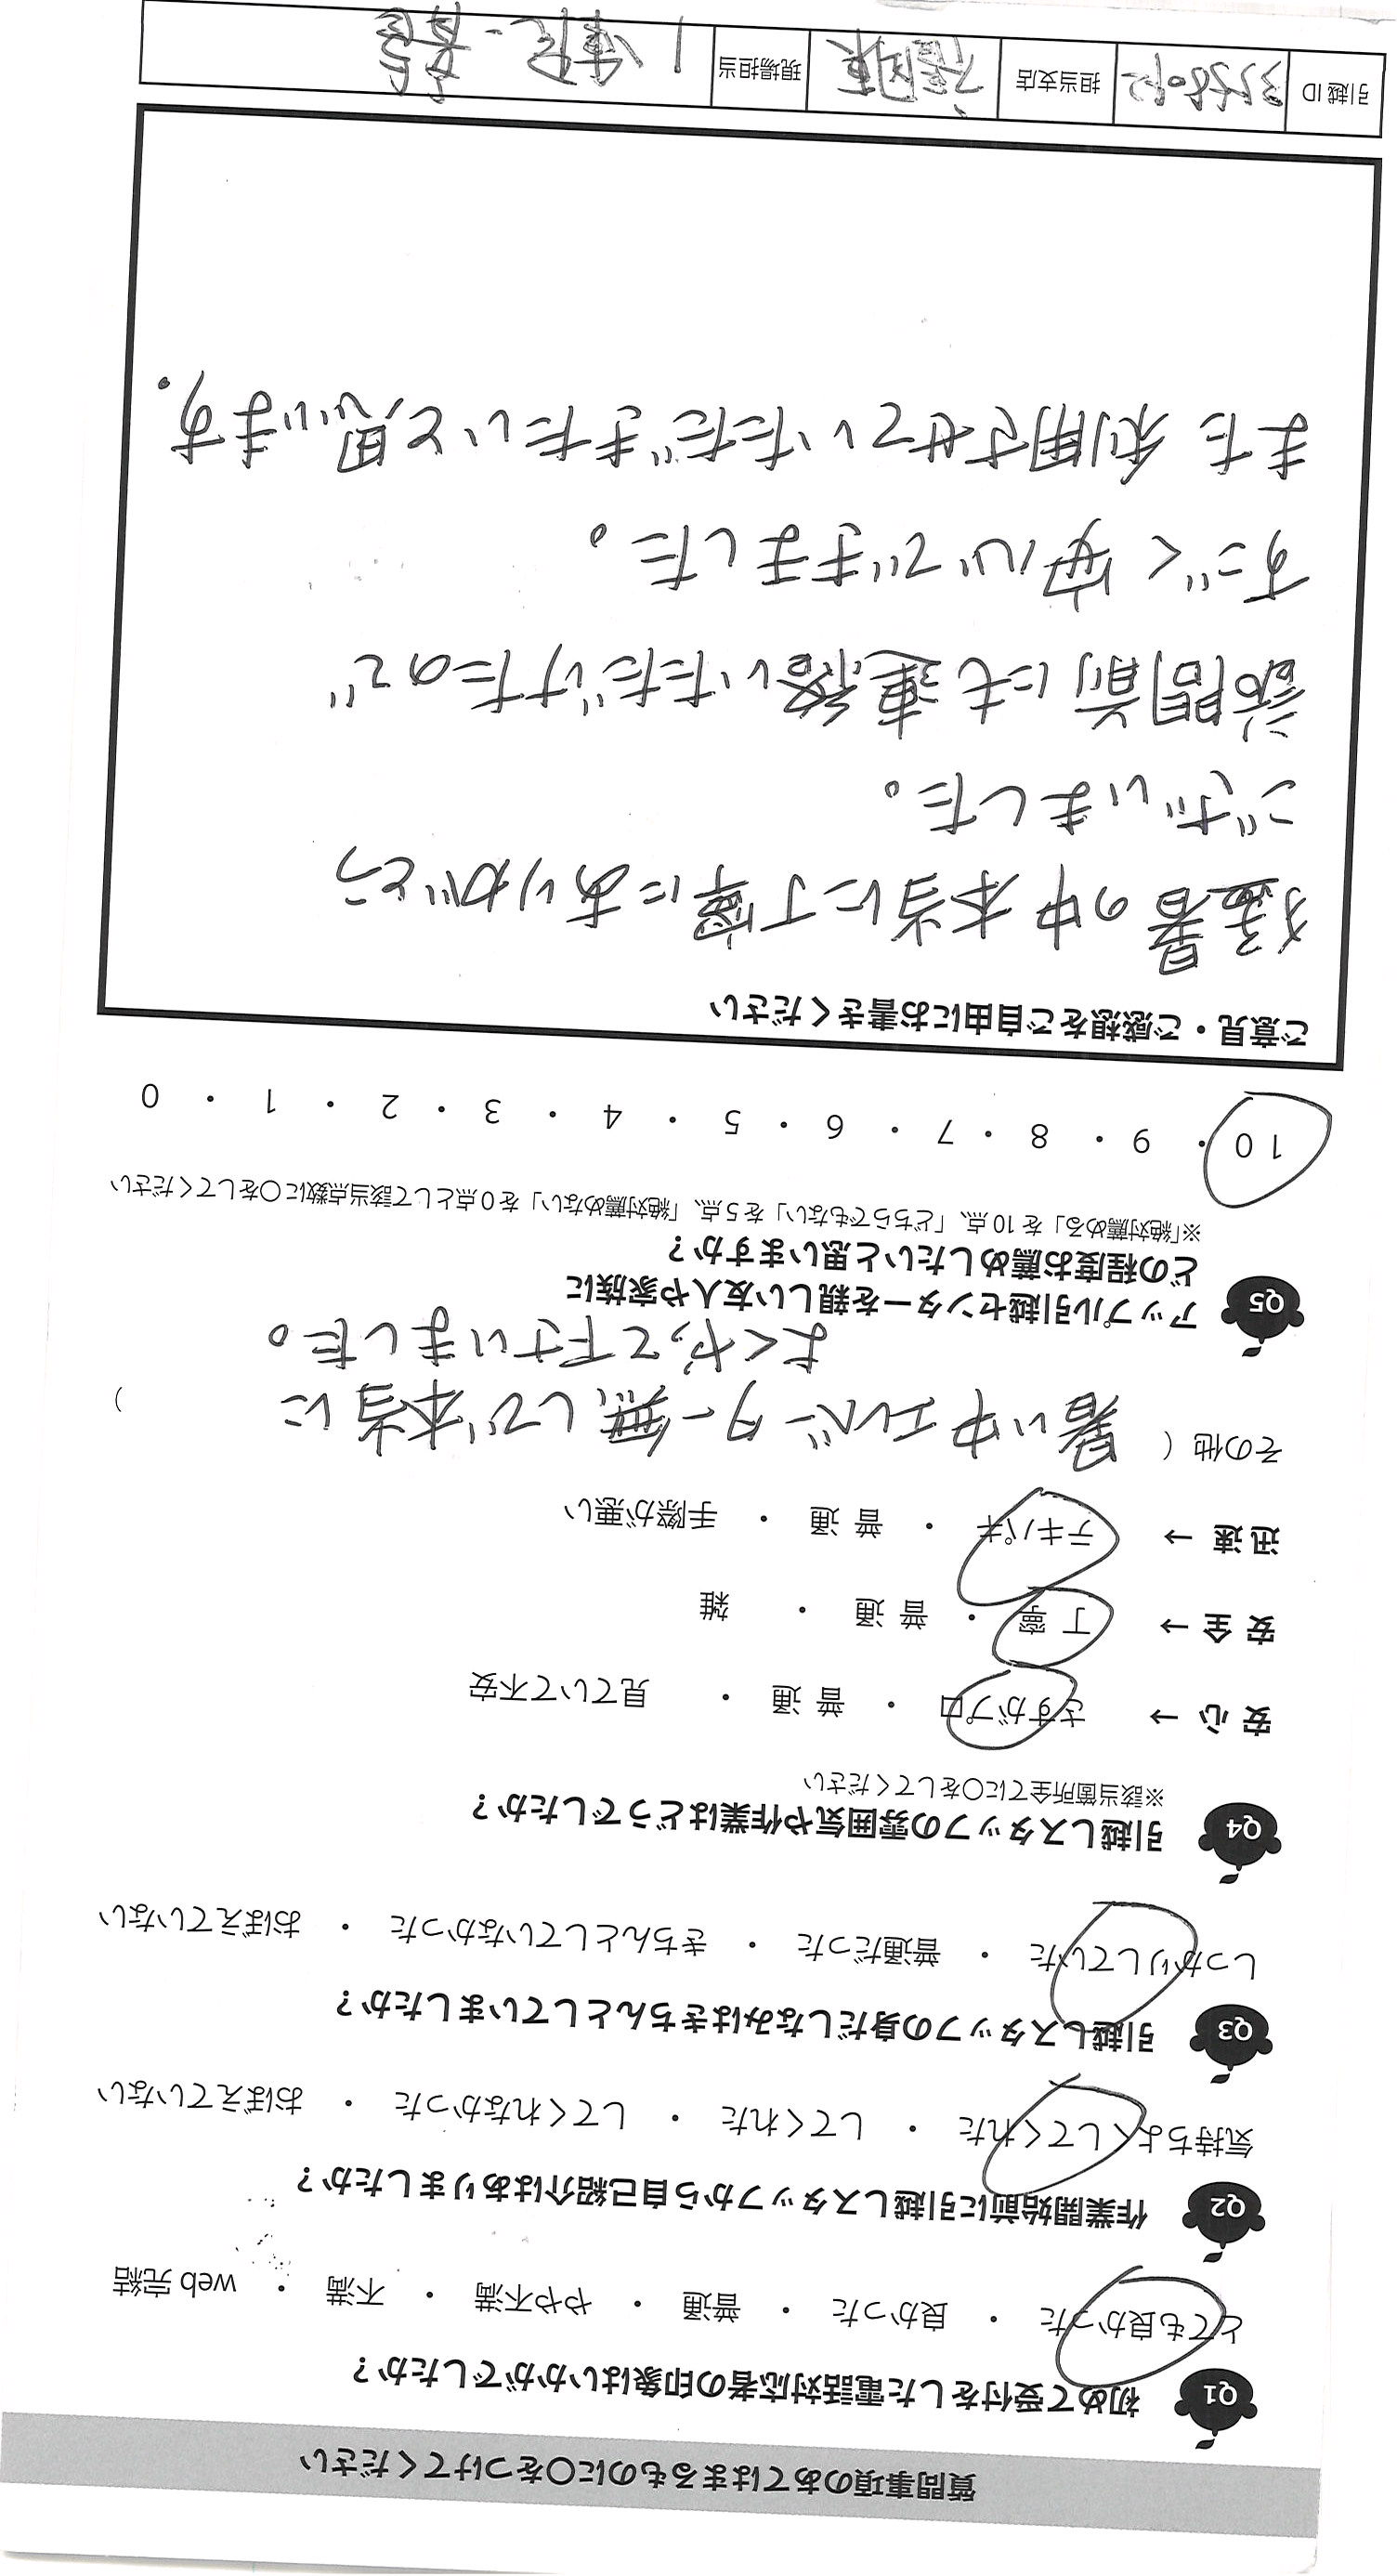 質問事項のあてはまるものに○をつけてください
Q1 初めて受付をした電話対応者の印象はいかがでしたか？
とても良かった ・ 良かった ・ 普通 ・ やや不満 ・ 不満 ・ web 完結
Q2 作業開始前に引越しスタッフから自己紹介はありましたか？
気持ちよくしてくれた ・ してくれた ・ してくれなかった ・ おぼえていない
Q3 引越しスタッフの身だしなみはきちんとしていましたか？
しっかりしていた ・ 普通だった ・ きちんとしていなかった ・ おぼえていない
Q4 引越しスタッフの雰囲気や作業はどうでしたか？
※該当箇所全てに○をしてください
安心 → さすがプロ ・ 普通 ・ 見ていて不安
安全 → 丁寧 ・ 普通 ・ 雑
迅速 → テキパキ ・ 普通 ・ 手際が悪い
その他（ 暑い中エレベーター無しで本当に ）
よくやって下さいました。
Q5 アップル引越センターを親しい友人や家族に
どの程度お薦めしたいと思いますか？
※「絶対薦める」を 10 点、「どちらでもない」を 5 点、「絶対薦めない」を 0 点として該当点数に○をしてください
10 ・ 9 ・ 8 ・ 7 ・ 6 ・ 5 ・ 4 ・ 3 ・ 2 ・ 1 ・ 0
ご意見・ご感想をご自由にお書きください
猛暑の中本当に丁寧にありがとう
ございました。
訪問前にも連絡いただけたので
すごく安心できました。
また利用させていただきたいと思います.
引越 ID 担当支店 福岡東 現場担当